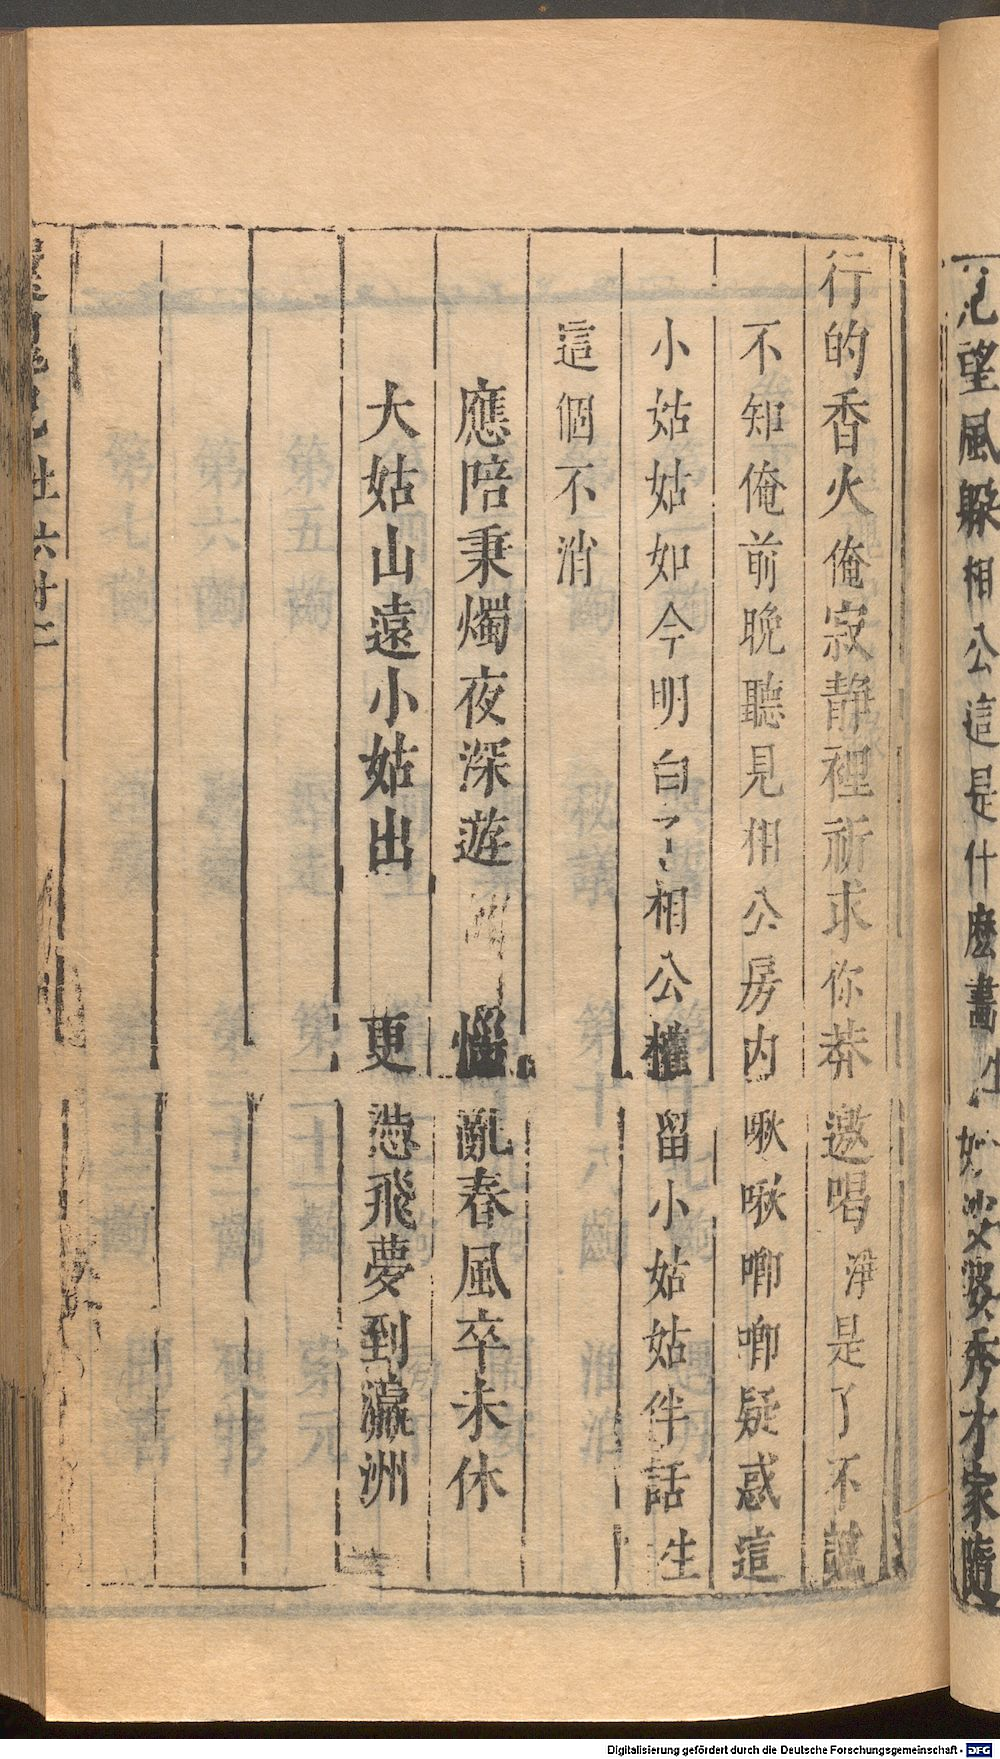 望風躲相公這是什麽畫生妙娑婆秀才家隨
行的香火俺寂靜裡祈求你莽邀喝淨是了不說
不知俺前晚聽見相公房内啾啾唧唧疑惑這
小姑姑如今明白了相公權留小姑姑伴話生
這個不消
應陪秉燭夜深遊 惱亂春風卒未休
大姑山遠小姑出 更憑飛夢到瀛洲
Digitalisierung gefördert durch die Deutsche Forschungsgemeinschaft - DFG